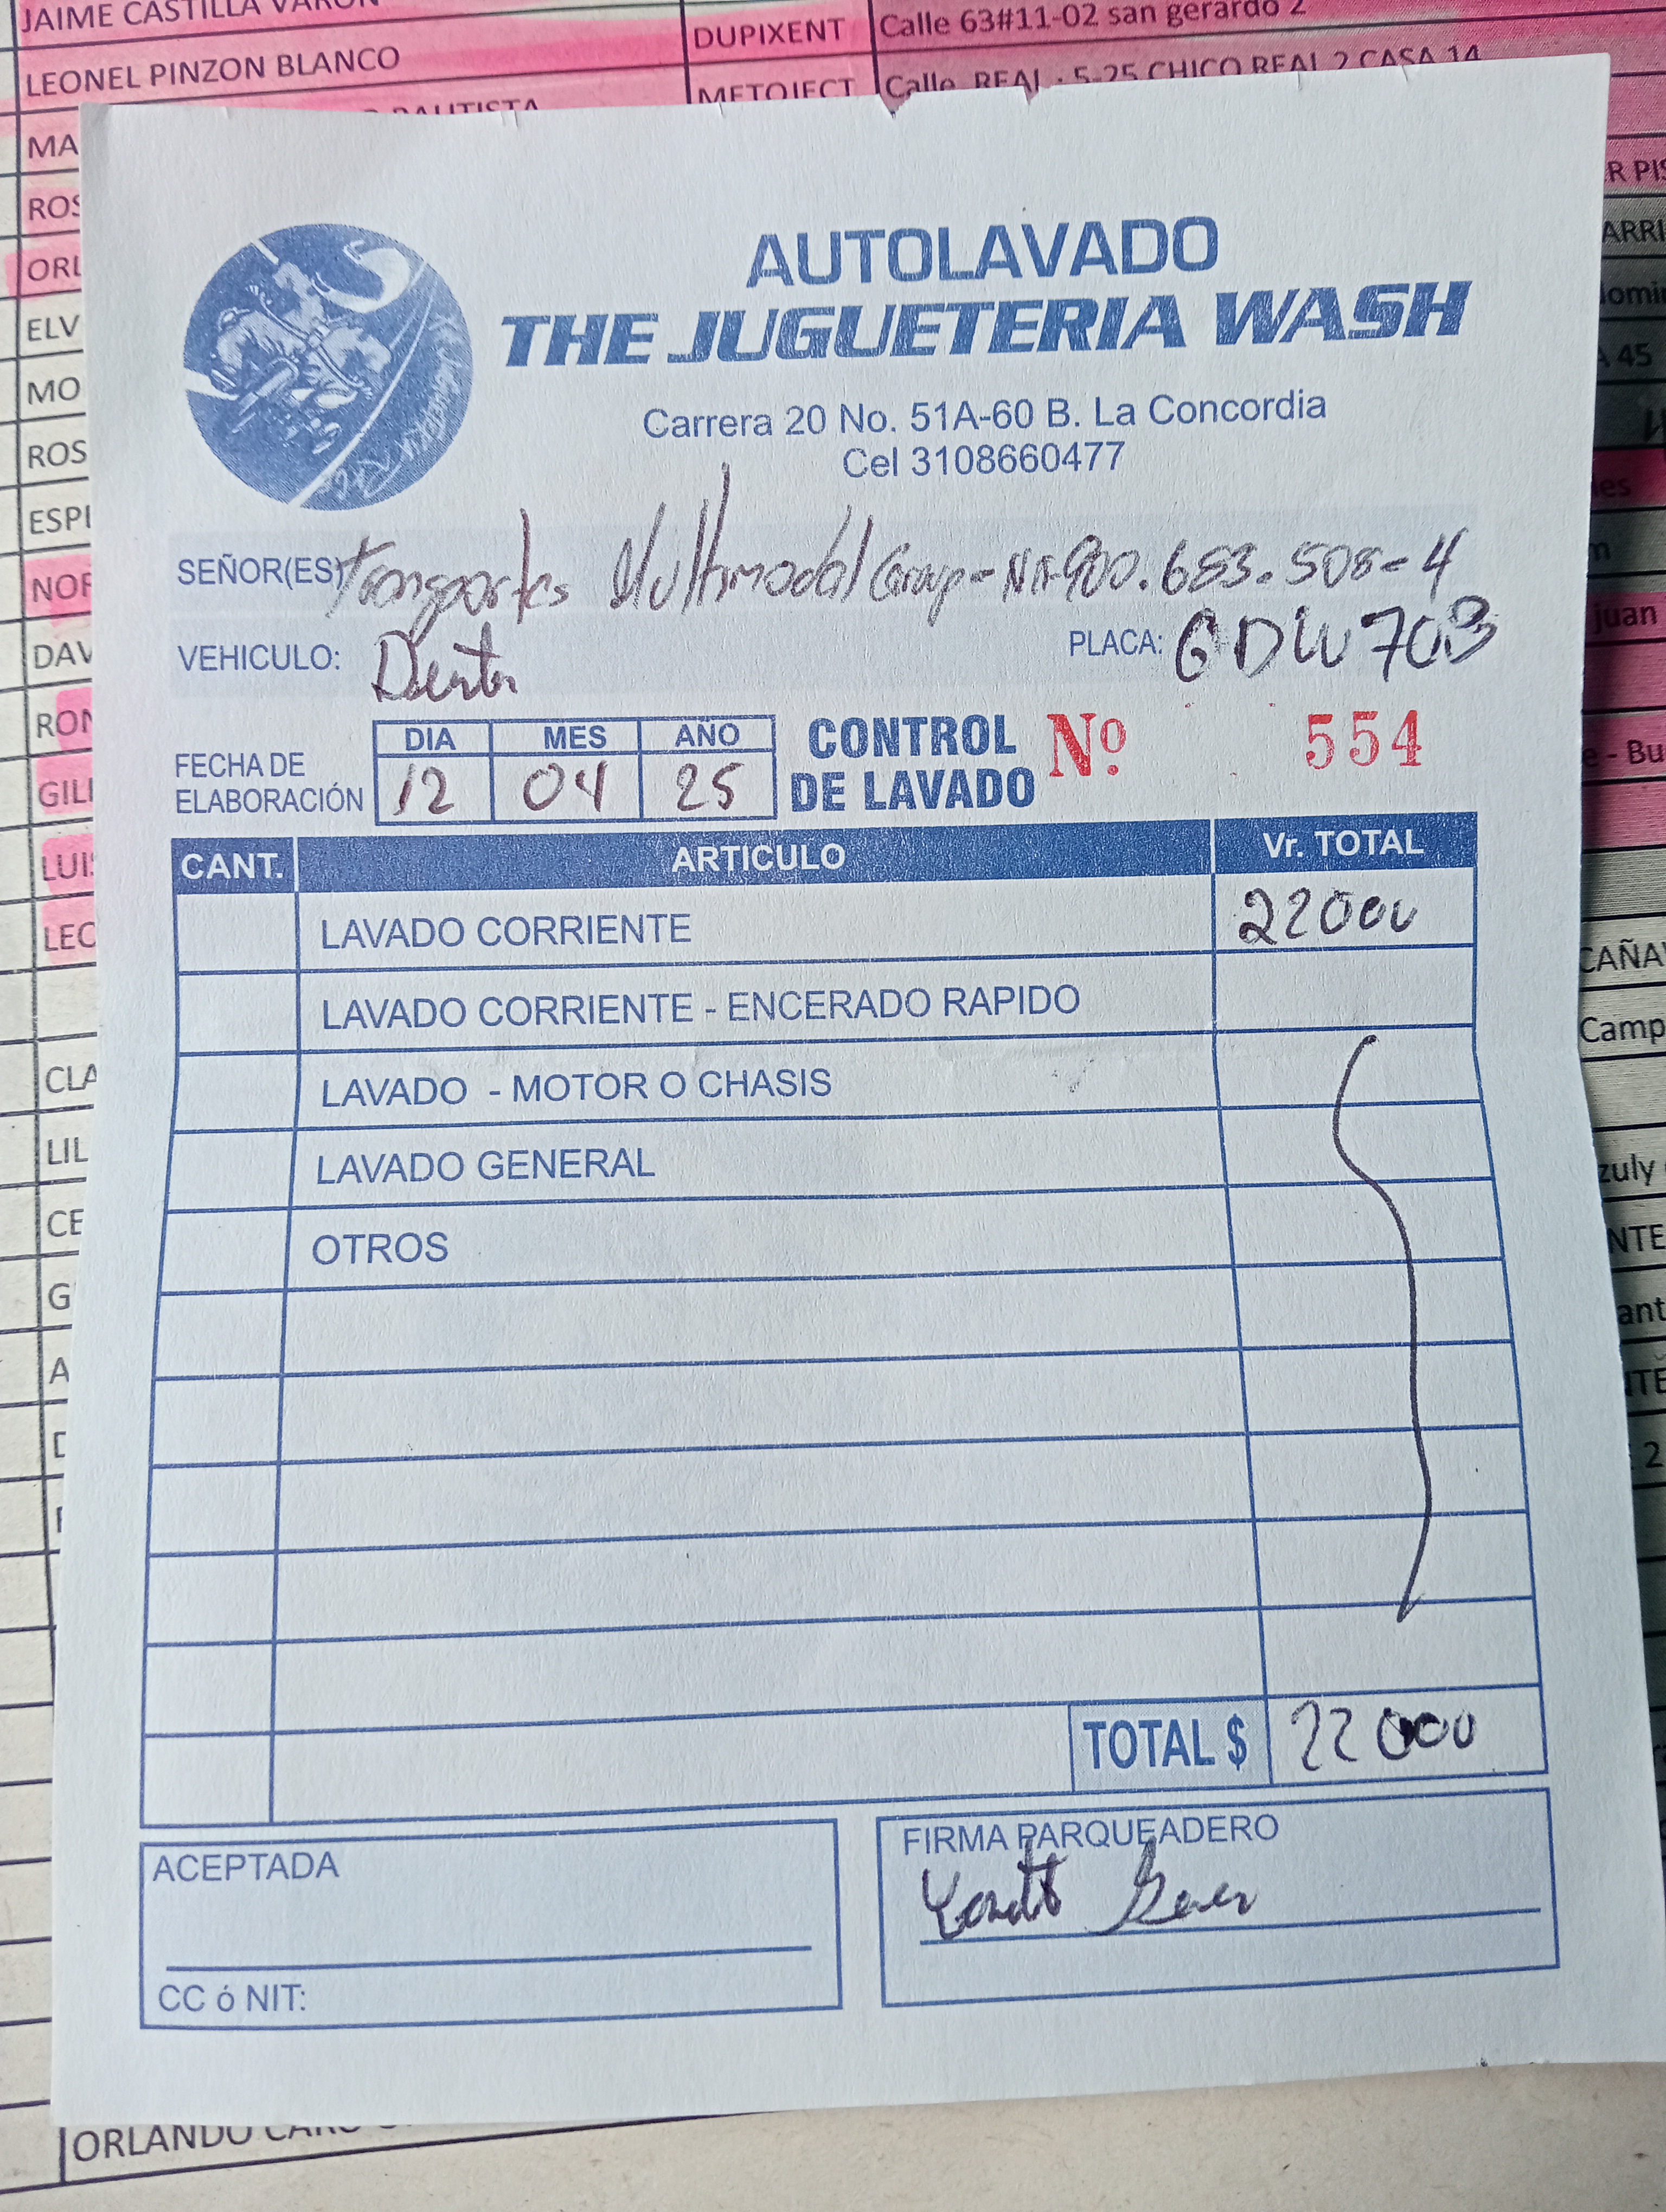 JAIME CASTILLA
LEONEL PINZON BLANCO DUPIXENT Calle 63#11-02 san gerardo 2
BAUTISTA METOJECT Calle REAL · 5-25 CHICO REAL 2 CASA 14
AUTOLAVADO
THE JUGUETERIA WASH
Carrera 20 No. 51A-60 B. La Concordia
Cel 3108660477
SEÑOR(ES) Transportes Multimodal Group - Nit-900.683.508-4
VEHICULO: PLACA: GDW703
FECHA DE ELABORACIÓN
DIA MES AÑO
12 04 25
CONTROL DE LAVADO Nº. 554
CANT. ARTICULO Vr. TOTAL
LAVADO CORRIENTE 22000
LAVADO CORRIENTE - ENCERADO RAPIDO
LAVADO - MOTOR O CHASIS
LAVADO GENERAL
OTROS
TOTAL $ 22000
ACEPTADA
CC ó NIT:
FIRMA PARQUEADERO
MA
ROS
ORL
ELV
MO
ROS
ESPI
DAV
GIL
LUIS
LEC
CLA
LIL
CE
G
A
R PIS
ARRI
A 45
juan
- Bu
CAÑA
Camp
zuly
NTE
ant
ORLANDO